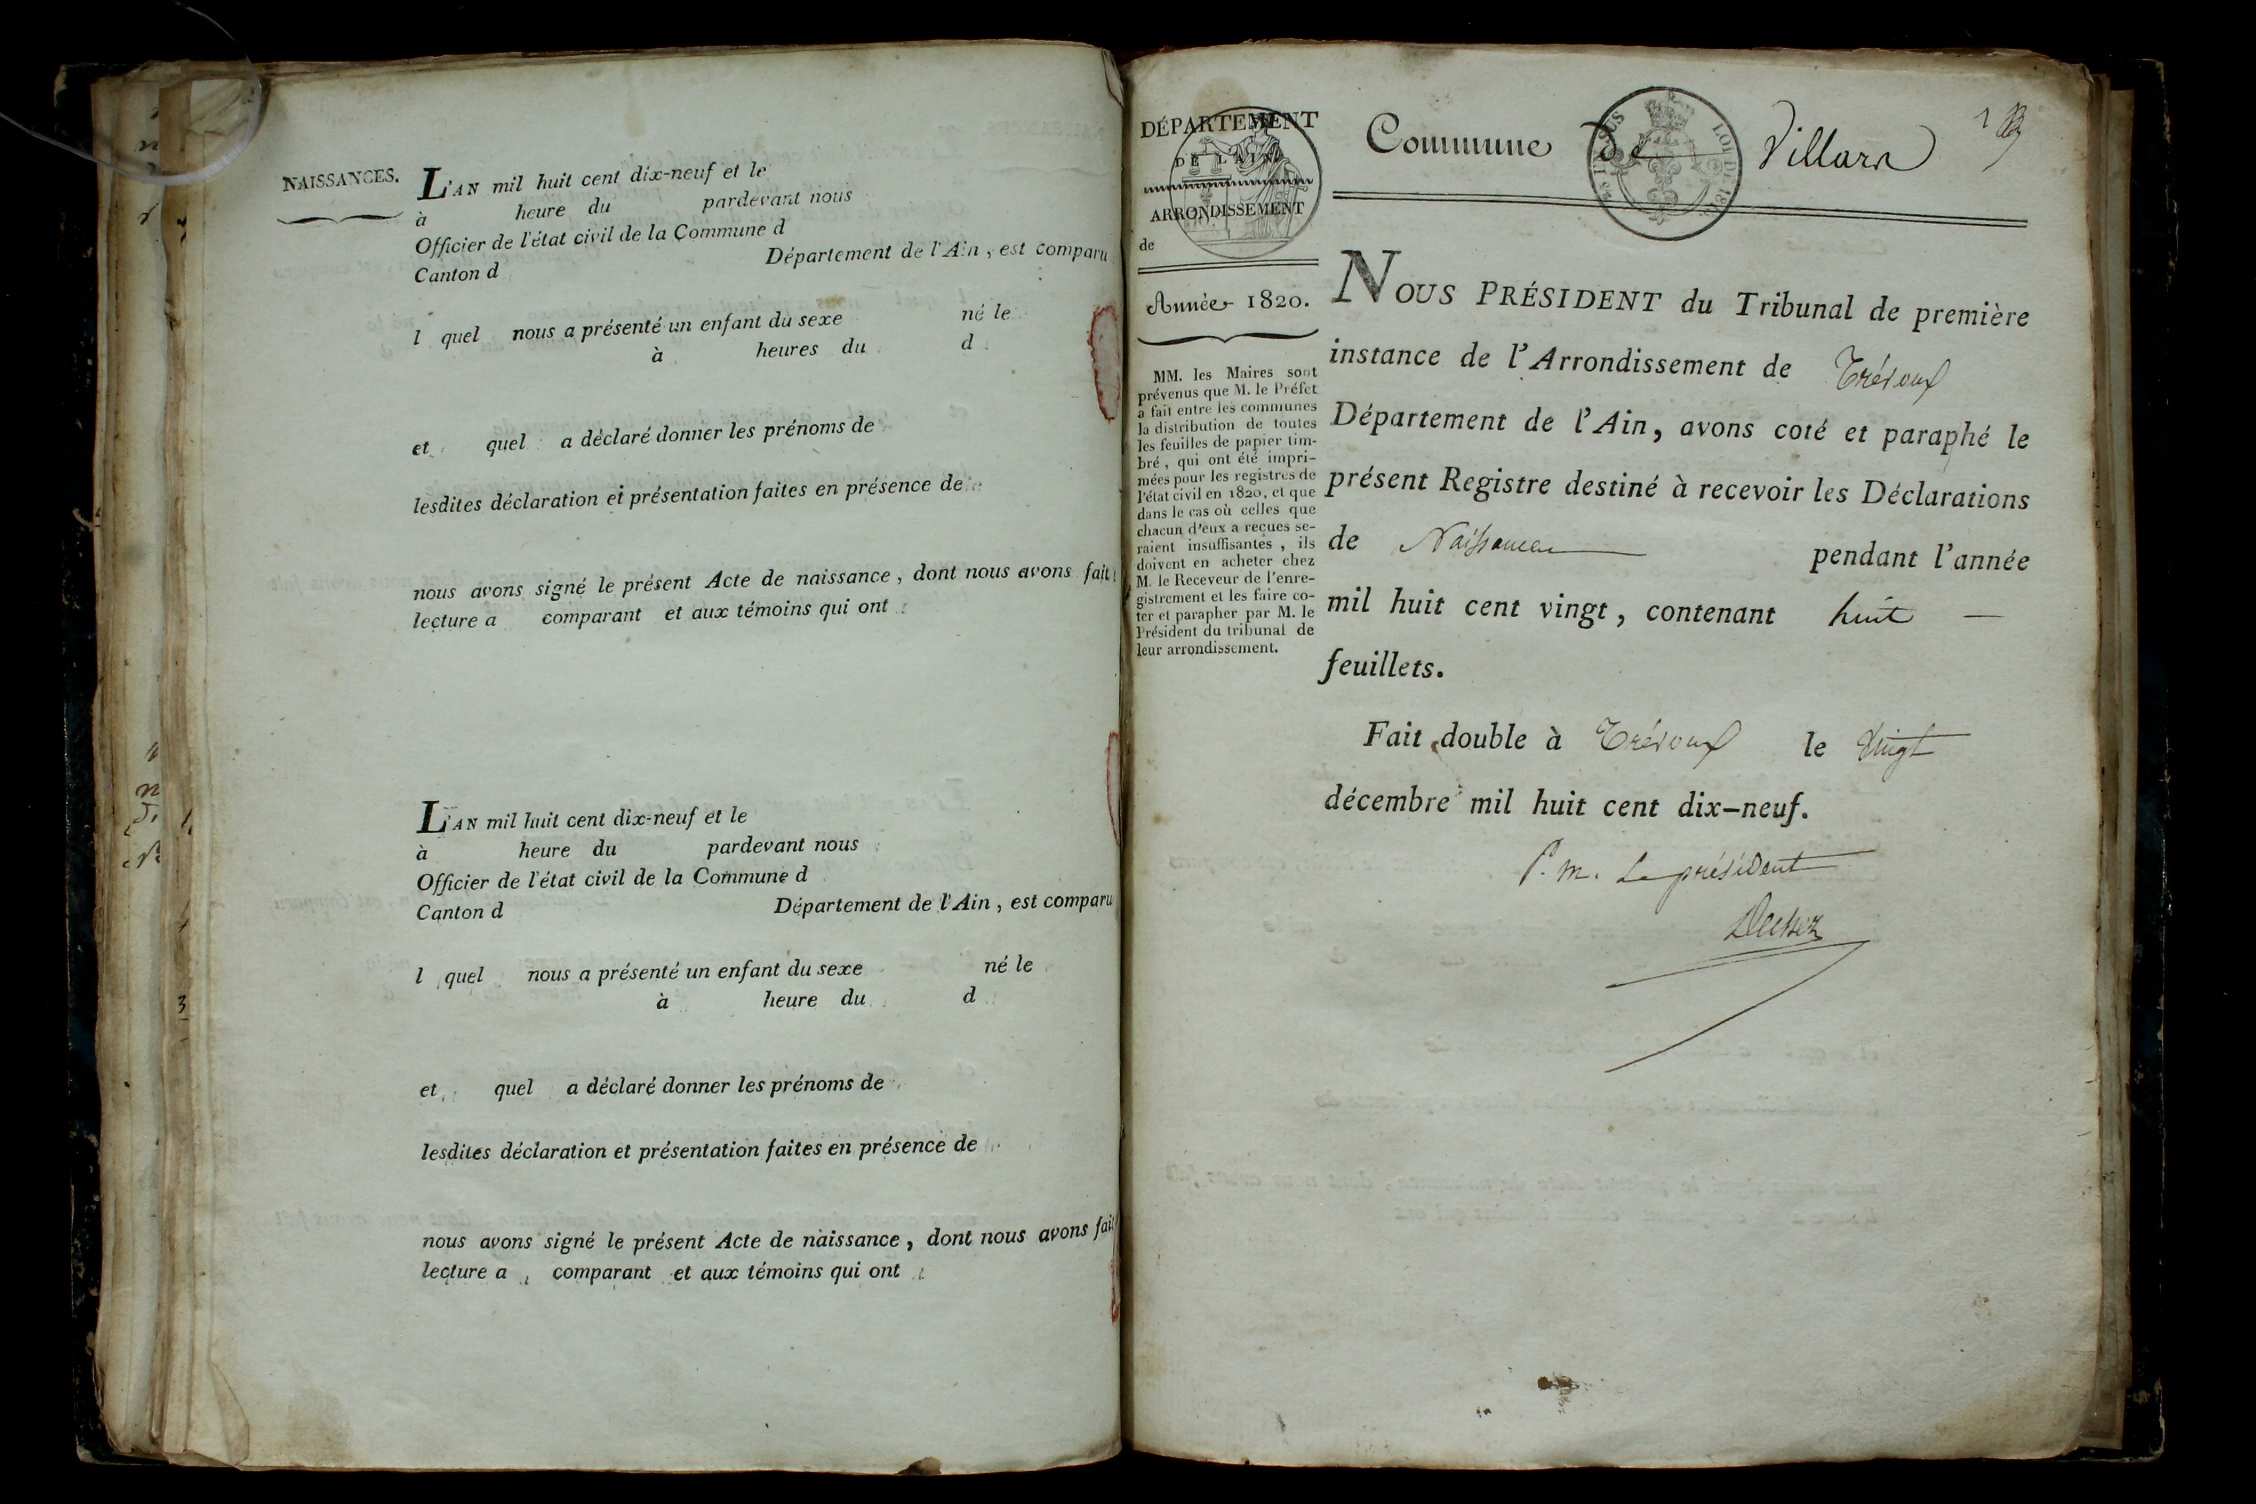 NAISSANCES.
L'AN mil huit cent dix-neuf et le
à heure du pardevant nous
Officier de l'état civil de la Commune d
Canton d Département de l'Ain, est comparu
l quel nous a présenté un enfant du sexe né le
à heures du d
et quel a déclaré donner les prénoms de
lesdites déclaration et présentation faites en présence de
nous avons signé le présent Acte de naissance, dont nous avons fait
lecture a comparant et aux témoins qui ont
L'AN mil huit cent dix-neuf et le
à heure du pardevant nous
Officier de l'état civil de la Commune d
Canton d Département de l'Ain, est comparu
l quel nous a présenté un enfant du sexe né le
à heure du d
et quel a déclaré donner les prénoms de
lesdites déclaration et présentation faites en présence de
nous avons signé le présent Acte de naissance, dont nous avons fait
lecture a comparant et aux témoins qui ont
DÉPARTEMENT
DE L'AIN
ARRONDISSEMENT
de
Année 1820.
MM. les Maires sont
prévenus que M. le Préfet
a fait entre les communes
la distribution de toutes
les feuilles de papier tim-
bré, qui ont été impri-
mées pour les registres de
l'état civil en 1820, et que
dans le cas où celles que
chacun d'eux a reçues se-
raient insuffisantes, ils
doivent en acheter chez
M. le Receveur de l'enre-
gistrement et les faire co-
ter et parapher par M. le
Président du tribunal de
leur arrondissement.
Commune de Villars
NOUS PRÉSIDENT du Tribunal de première
instance de l'Arrondissement de Trévoux
Département de l'Ain, avons coté et paraphé le
présent Registre destiné à recevoir les Déclarations
de Naissances pendant l'année
mil huit cent vingt, contenant huit —
feuillets.
Fait double à Trévoux le Vingt
décembre mil huit cent dix-neuf.
P. m. Le président